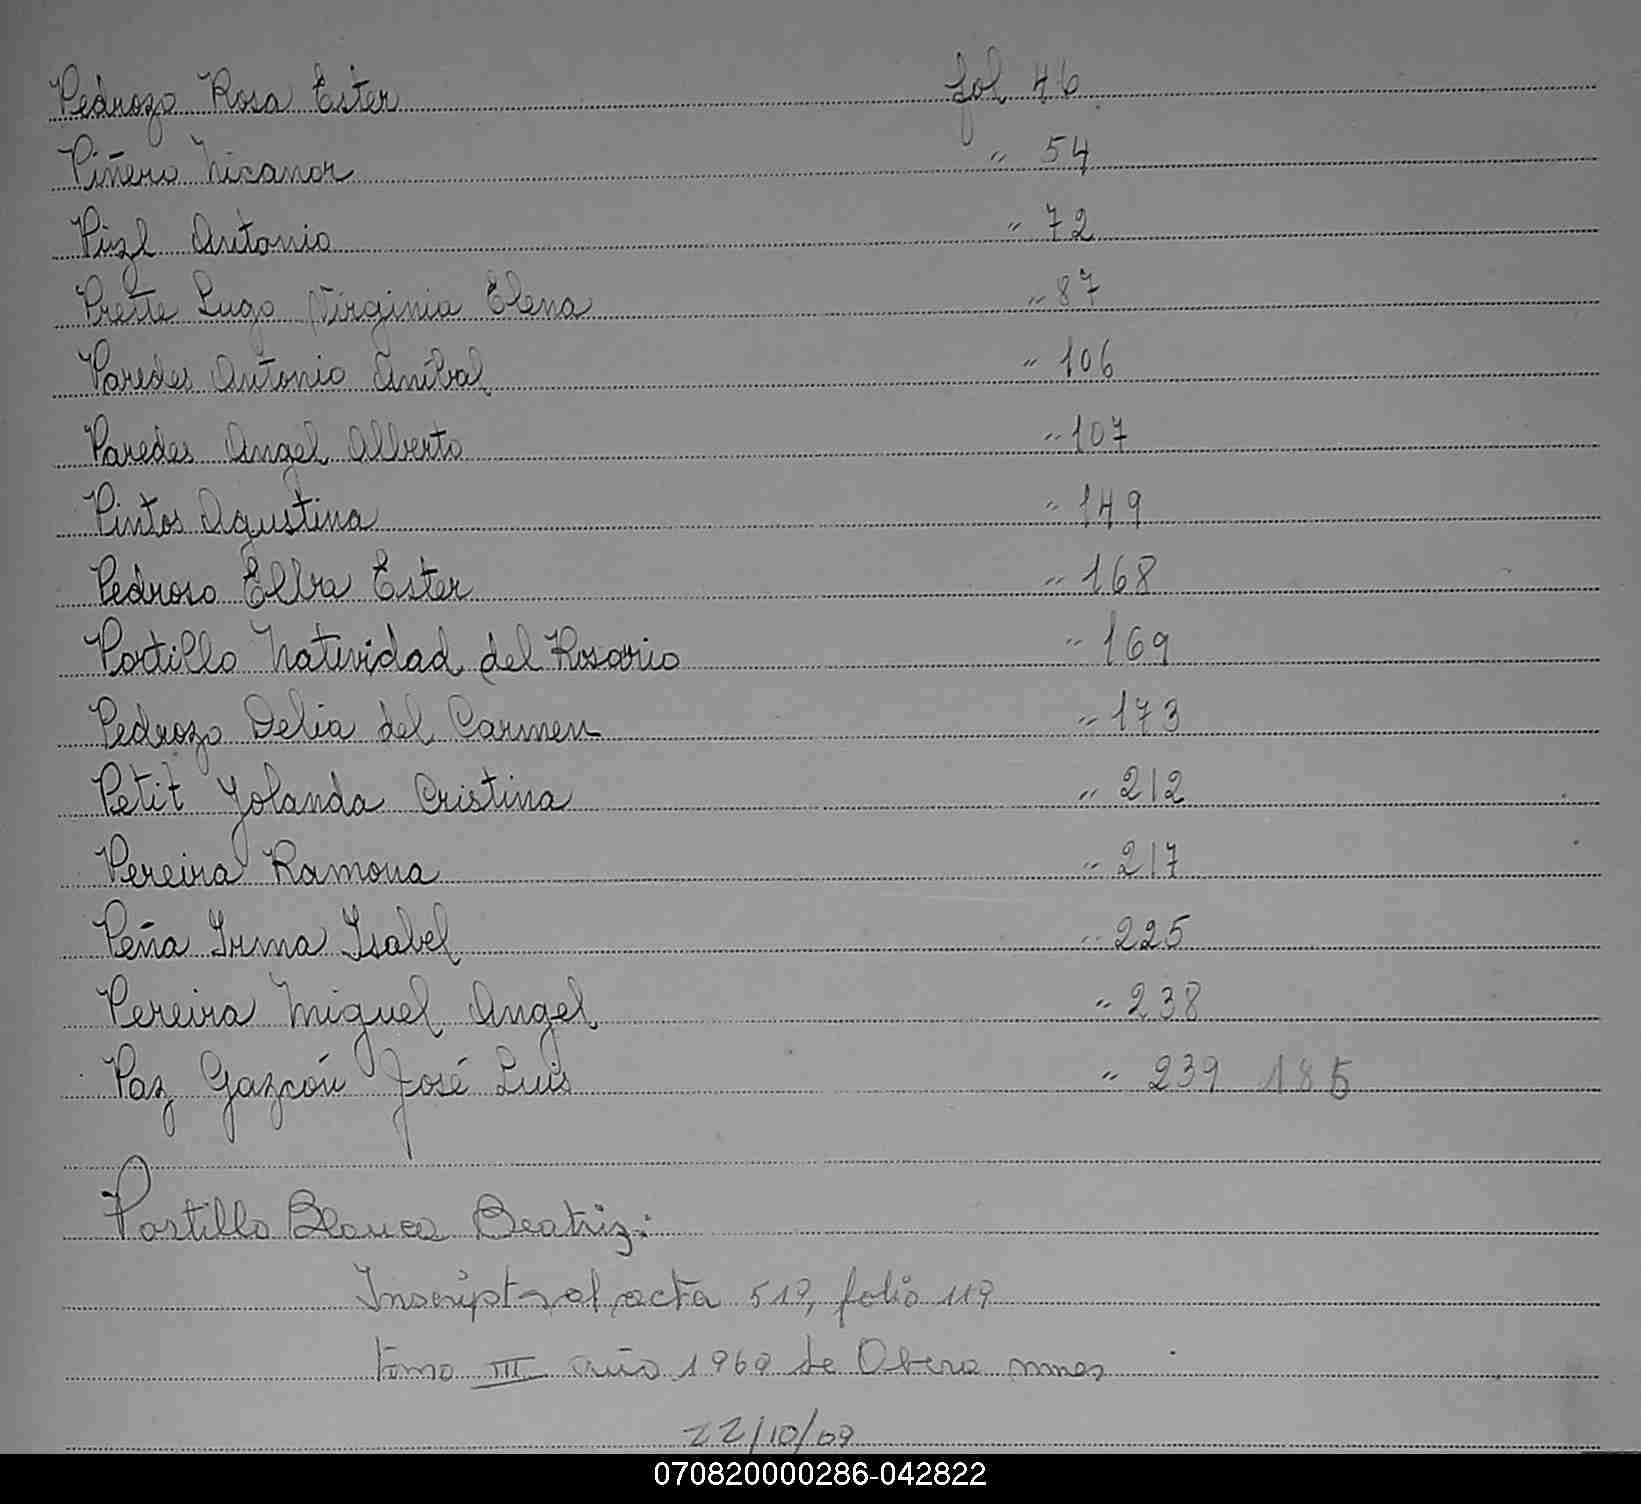 Pedrozo Rosa Ester fol 46
Piñero Nicanor " 54
Pizl Antonio " 72
Prette Lugo Virginia Elena " 87
Paredes Antonio Anibal " 106
Paredes Angel Alberto " 107
Pintos Agustina " 149
Pedroso Elba Ester " 168
Portillo Natividad del Rosario " 169
Pedrozo Delia del Carmen " 173
Petit Yolanda Cristina " 212
Pereira Ramona " 217
Peña Irma Isabel " 225
Pereira Miguel Angel " 238
Paz Gazcón José Luis " 239 185
Portillo Blanca Beatriz:
Inscripta al acta 519, folio 119
tomo III año 1969 de Obera mnes
22/10/09
070820000286-042822